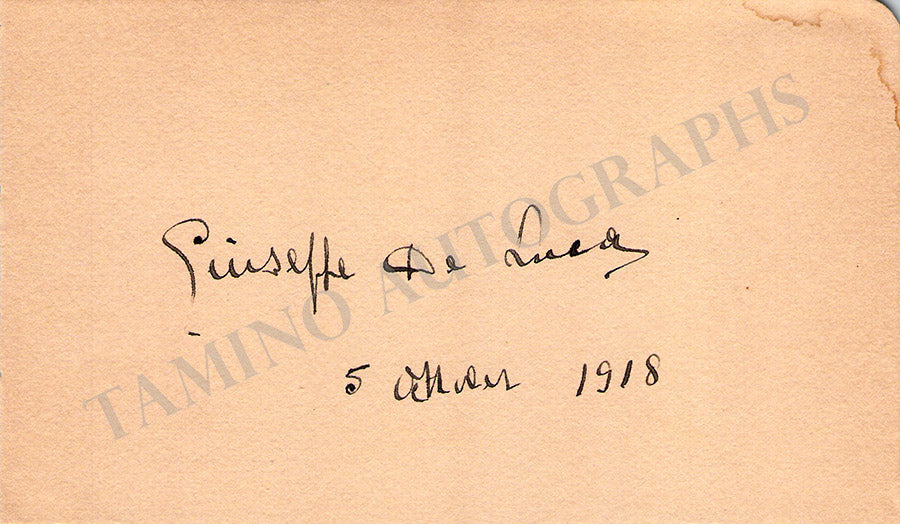 Giuseppe De Luca
5 1918
TAMINO AUTOGRAPHS